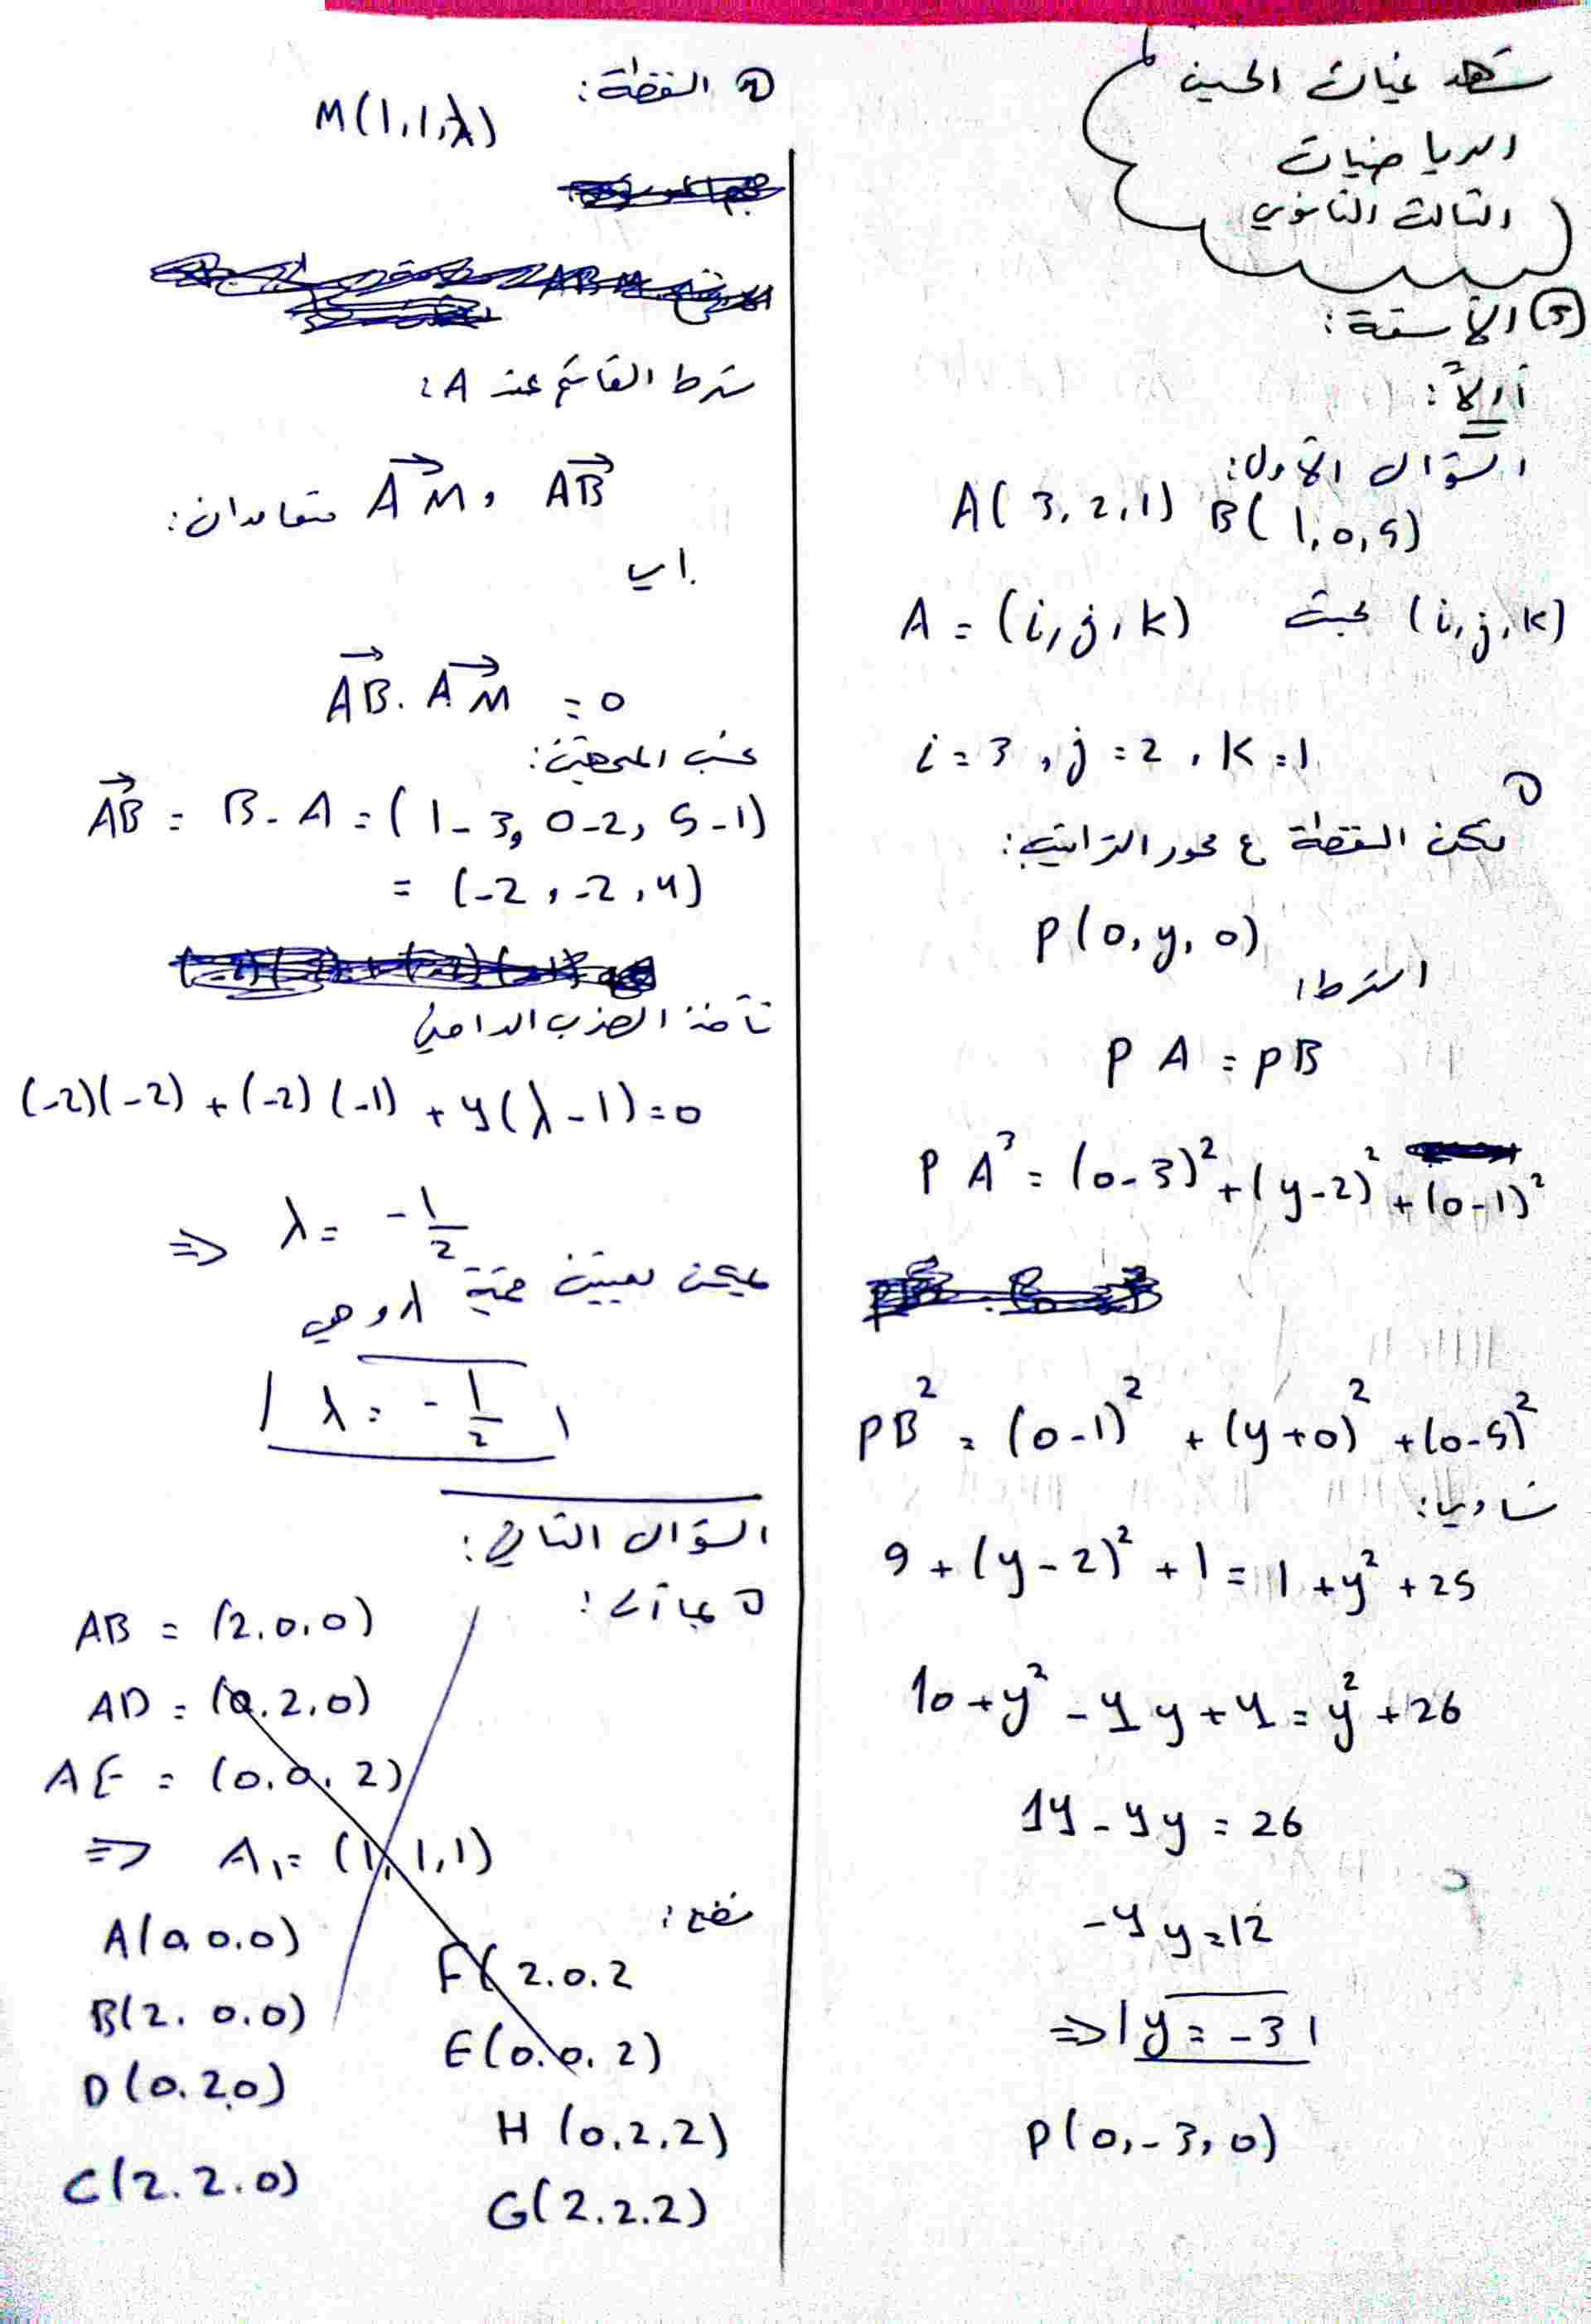 شهد غياث الحسين
الرياضيات
الثالث الثانوي
الأسئلة:
أولاً:
السؤال الأول:
A( 3, 2, 1) B( 1, 0, 5)
A = (i, j, k) بحيث (i, j, k)
i = 3 , j = 2 , k = 1
①
تكن النقطة ع محور التراتيب:
P(0, y, 0)
الشرط:
P A = PB
P A³ = (0-3)² + (y-2)² + (0-1)²
PB² = (0-1)² + (y+0)² + (0-5)²
نساوي:
9 + (y-2)² + 1 = 1 + y² + 25
10 + y² - 4y + 4 = y² + 26
14 - 4y = 26
-4y = 12
⇒ y = -3
P(0, -3, 0)
② النقطة:
M(1, 1, λ)
شرط القائم عند A:
AB , AM متعامدان:
اي
AB . AM = 0
AB = B - A = (1-3, 0-2, 5-1)
= (-2, -2, 4)
نأخذ الضرب الداخلي
(-2)(-2) + (-2)(-1) + 4(λ-1) = 0
⇒ λ = -1/2
يمكن تعيين قيمة λ وهي
λ = -1/2
السؤال الثاني:
① بما أن:
AB = (2, 0, 0)
AD = (0, 2, 0)
AE = (0, 0, 2)
⇒ A₁ = (1, 1, 1)
نضع:
A(0, 0, 0)
F(2, 0, 2
B(2, 0, 0)
E(0, 0, 2)
D(0, 2, 0)
H(0, 2, 2)
C(2, 2, 0)
G(2, 2, 2)